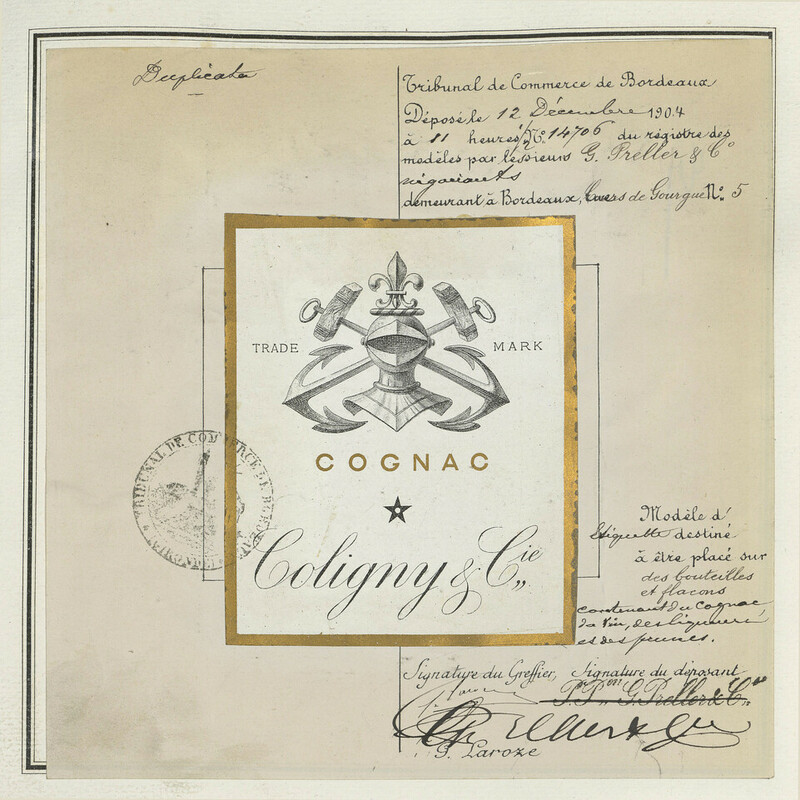 Duplicata
Tribunal de Commerce de Bordeaux
Déposé le 12 Décembre 1904
à 11 heures Nº 14706 du régistre des
modèles par les sieurs G. Preller & Cº
négociants
demeurant à Bordeaux, Cours de Gourgue Nº 5
TRADE MARK
COGNAC
Coligny & Cie
TRIBUNAL DE COMMERCE DE BORDEAUX
Modèle d'
Etiquette destiné
à être placé sur
des bouteilles
et flacons
contenant du Cognac
du Vin, des liqueurs
et des
Signature du Greffier, Signature du déposant
P. Pon G. Preller & Cie
G. Laroze